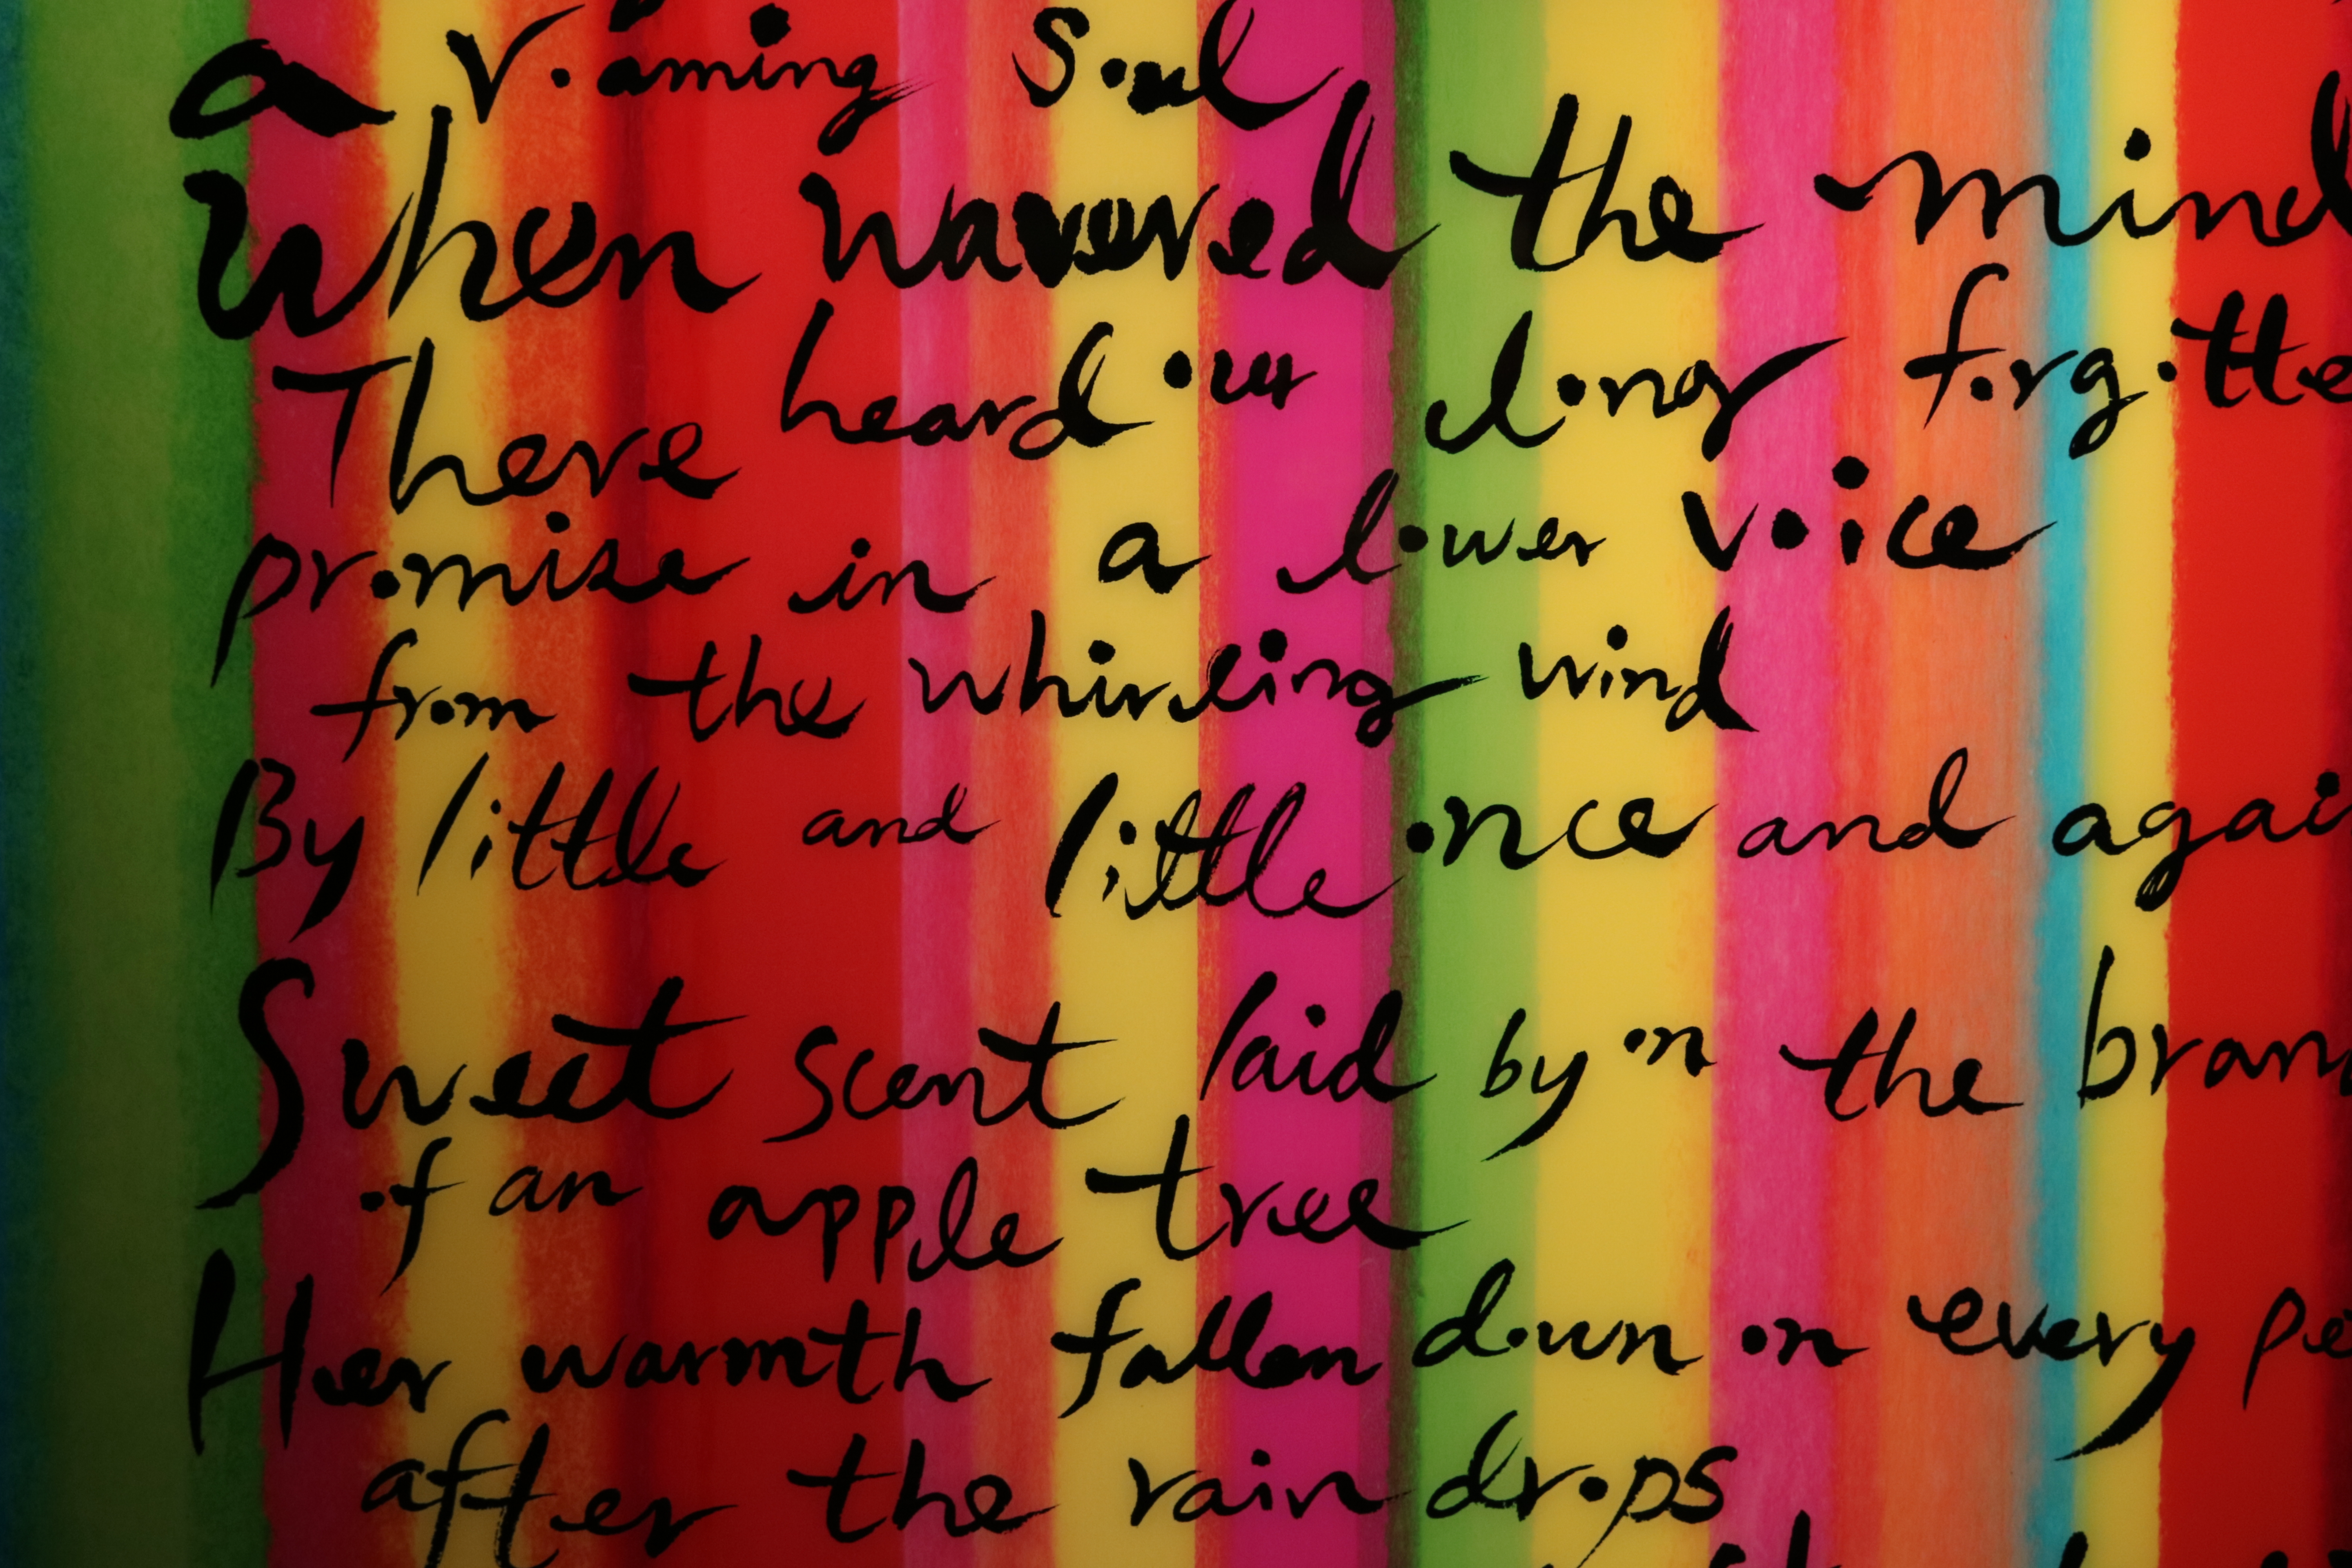 a roaming soul
When wavered the mind
There heard our long forgotte
promise in a lower voice
from the whirling wind
By little and little once and agai
Sweet scent laid by on the bran
of an apple tree
Her warmth fallen down on every pe
after the rain drops